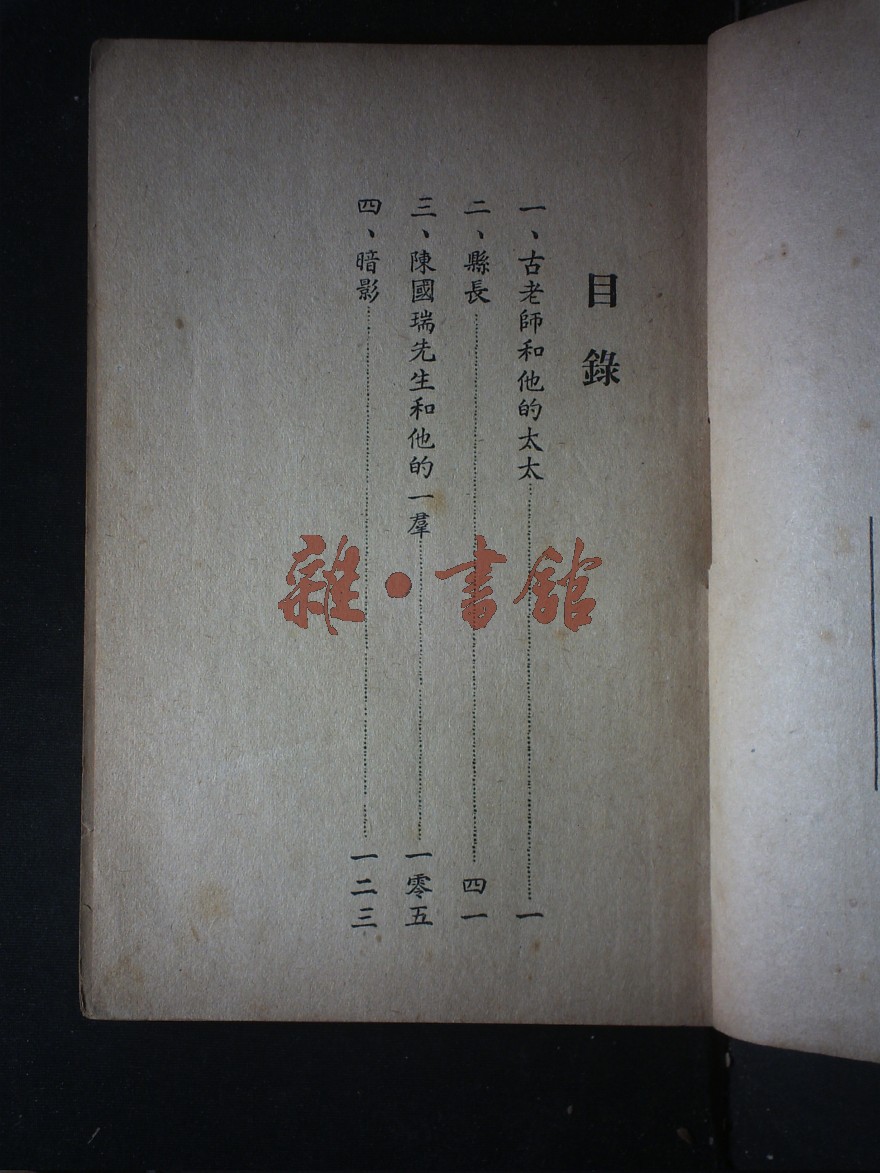 目錄
一、古老師和他的太太……一
二、縣長……四一
三、陳國瑞先生和他的一羣……一零五
四、暗影……一二三
雜·書館